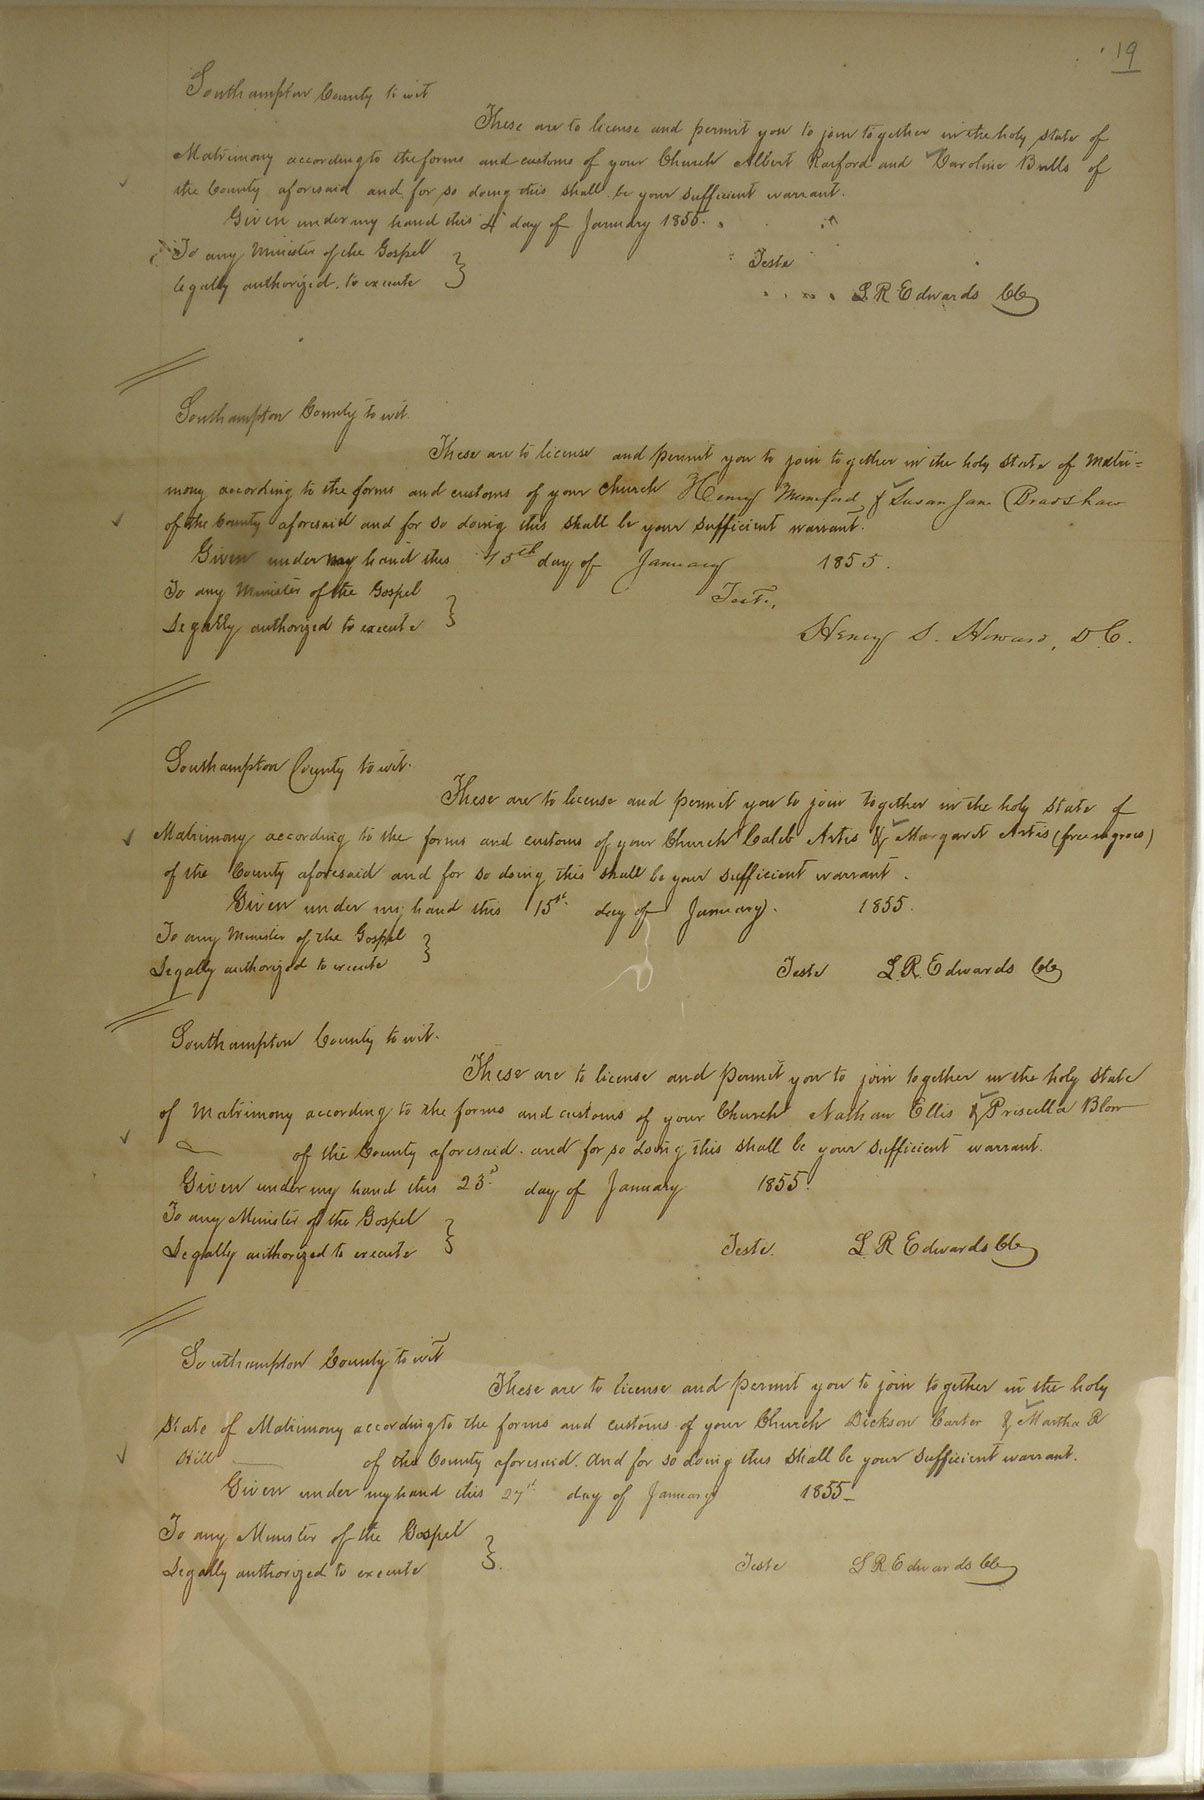 19
Southampton County to wit
These are to license and permit you to join together in the holy state of
Matrimony according to the forms and customs of your Church Albert Raiford and Caroline Bulls of
the County aforesaid and for so doing this shall be your sufficient warrant.
Given under my hand this 4 day of January 1855.
To any Minister of the Gospel
legally authorized to execute } Teste
L R Edwards Clk
Southampton County to wit.
These are to license and permit you to join together in the holy state of Matri=
mony according to the forms and customs of your Church Henry Mumford & Susan Jane Bradshaw
of the County aforesaid and for so doing this shall be your sufficient warrant.
Given under my hand this 15th day of January 1855.
To any Minister of the Gospel
Legally authorized to execute } Test.,
Henry S. Howard, D.C.
Southampton County to wit.
These are to license and permit you to join together in the holy state of
Matrimony according to the forms and customs of your Church Caleb Artis & Margaret Artis (free negroes)
of the County aforesaid and for so doing this shall be your sufficient warrant.
Given under my hand this 15st. day of January. 1855.
To any Minister of the Gospel
Legally authorized to execute } Teste L.R. Edwards Clk
Southampton County to wit.
These are to license and permit you to join together in the holy state
of Matrimony according to the forms and customs of your Church Nathan Ellis & Priscilla Blow
of the County aforesaid. and for so doing this shall be your sufficient warrant.
Given under my hand this 23d day of January 1855.
To any Minister of the Gospel
Legally authorized to execute } Teste. L R Edwards Clk
Southampton County to wit
These are to license and permit you to join together in the holy
State of Matrimony according to the forms and customs of your Church Dickson Carter & Martha R
Hill of the County aforesaid. and for so doing this shall be your sufficient warrant.
Given under my hand this 27th day of January 1855
To any Minister of the Gospel
Legally authorized to execute }. Teste L R Edwards Clk